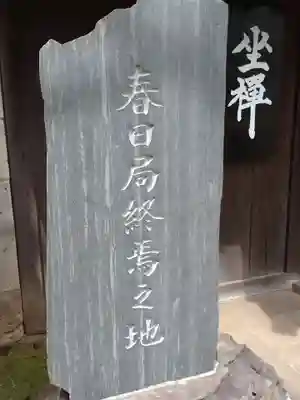 春日局終焉之地
坐禅